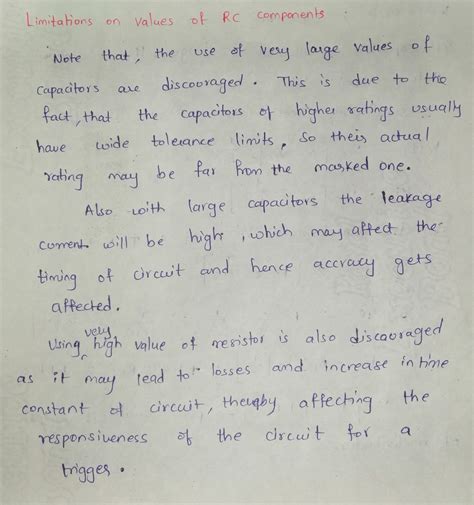 Limitations on values of RC components
Note that, the use of very large values of
capacitors are discouraged. This is due to the
fact, that the capacitors of higher ratings usually
have wide tolerance limits, so their actual
rating may be far from the marked one.
Also with large capacitors the leakage
current will be high, which may affect the
timing of circuit and hence accracy gets
affected.
Using very high value of resistor is also discouraged
as it may lead to losses and increase in time
constant of circuit, thereby affecting the
responsiveness of the circuit for a
trigger.